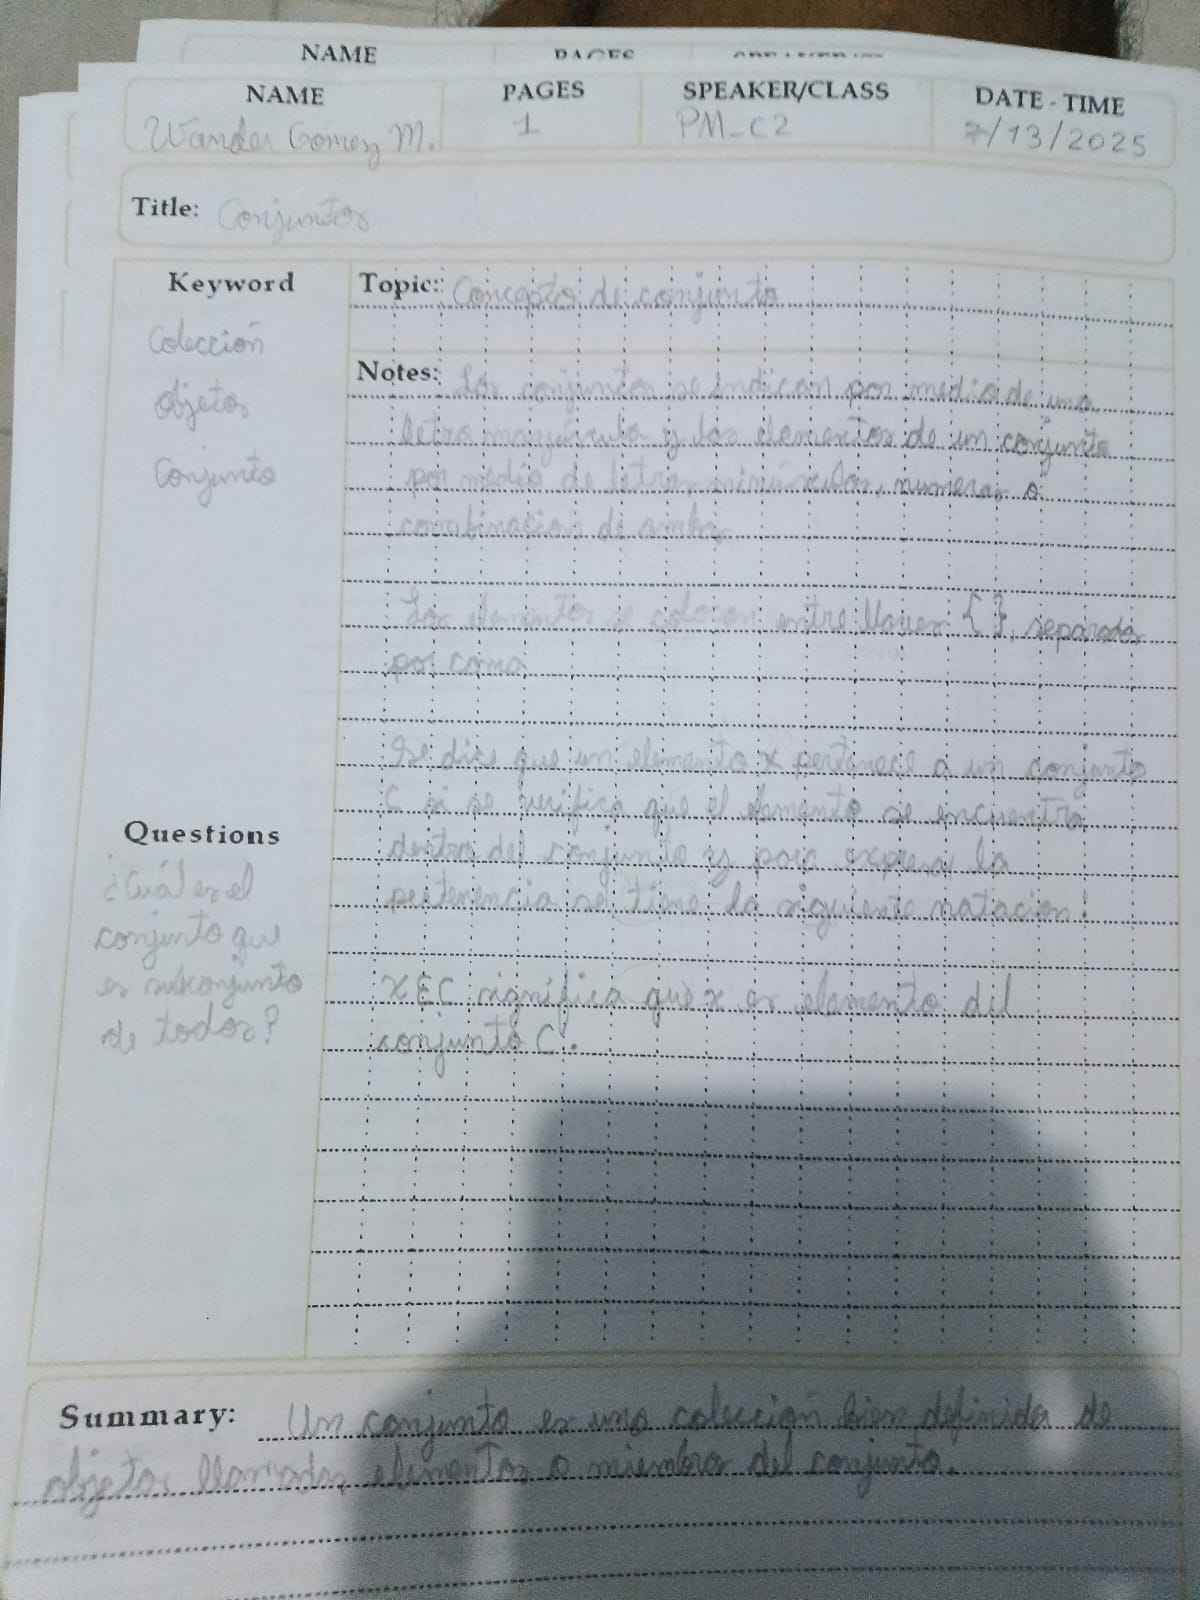 NAME PAGES
NAME PAGES SPEAKER/CLASS DATE - TIME
Wander Gomez M. 1 PM-C2 7/13/2025
Title: Conjuntos
Keyword
Colección
objetos
Conjunto
Topic: Concepto de conjunto
Notes: Los conjuntos se indican por medio de una
letra mayúscula y los elementos de un conjunto
por medio de letras minúsculas, numeros o
combinacion de ambos
Los elementos se colocan entre llaves { }, separados
por coma
Se dice que un elemento x pertenece a un conjunto
C si se verifica que el elemento se encuentra
dentro del conjunto y para expresar la
pertenencia se tiene la siguiente notacion:
x ∈ C significa que x es elemento del
conjunto C.
Questions
¿Cuál es el
conjunto que
es subconjunto
de todos?
Summary: Un conjunto es una colección bien definida de
objetos llamados elementos o miembros del conjunto.